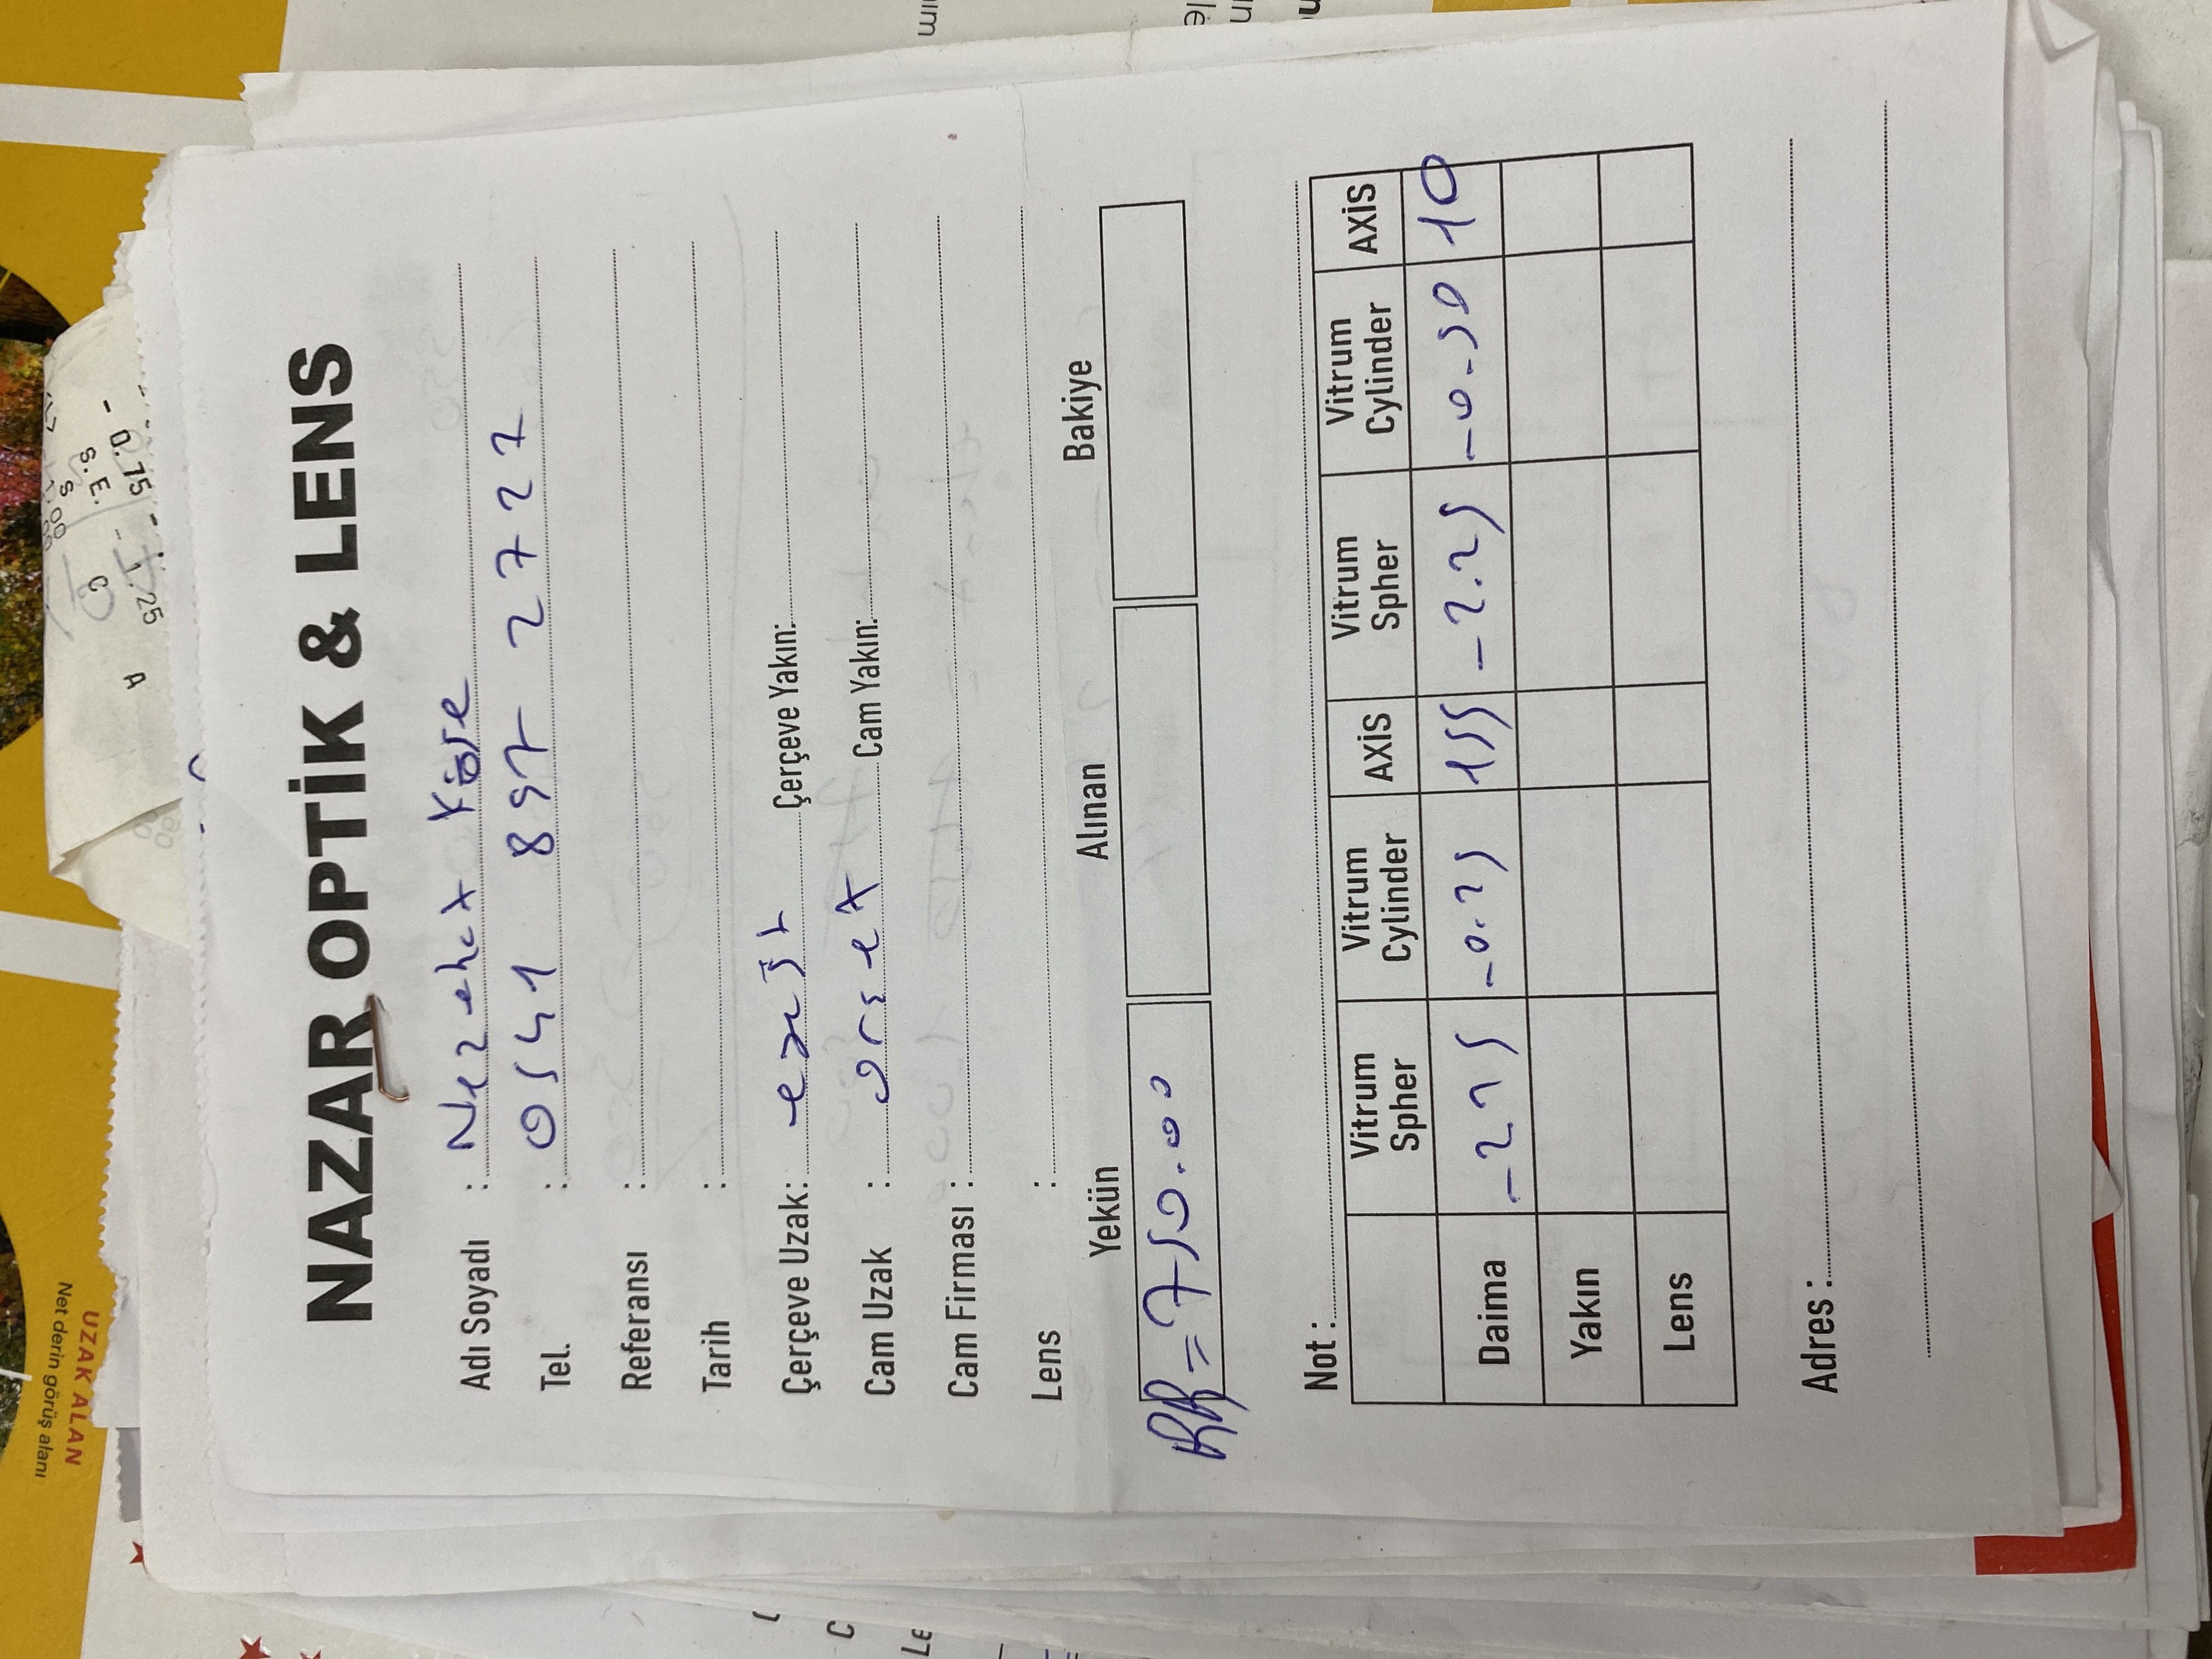 Net derin görüş alanı
UZAK ALAN
S
S.E.
C
- 0.75
- 1.25
A
NAZAR OPTİK & LENS
Adı Soyadı : Nezehat Köse
Tel. : 0541 897 2727
Referansı :
Tarih :
Çerçeve Uzak: Çerçeve Yakın:
Cam Uzak : Cam Yakın:
Cam Firması :
Lens :
Yekün Alınan Bakiye
= 750.00
Not :
Vitrum Spher Vitrum Cylinder AXİS Vitrum Spher Vitrum Cylinder AXİS
Daima -0.25 155 -2.25 -0.50 10
Yakın
Lens
Adres :